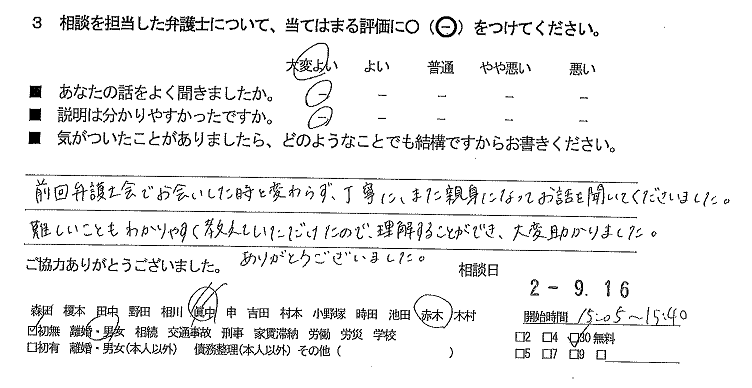 3 相談を担当した弁護士について、当てはまる評価に○（㊀）をつけてください。
大変よい よい 普通 やや悪い 悪い
■ あなたの話をよく聞きましたか。 － － － － －
■ 説明は分かりやすかったですか。 － － － － －
■ 気がついたことがありましたら、どのようなことでも結構ですからお書きください。
前回弁護士会でお会いした時と変わらず、丁寧に、また親身になってお話を聞いてくださいました。
難しいこともわかりやすく教えていただけたので、理解することができ、大変助かりました。
ありがとうございました。
ご協力ありがとうございました。
相談日
2-9.16
森田 榎本 田中 野田 相川 眞中 申 吉田 村本 小野塚 時田 池田 赤木 木村
開始時間 15:05～15:40
☑初無 離婚・男女 相続 交通事故 刑事 家賃滞納 労働 労災 学校
□2 □4 ☑30無料
□初有 離婚・男女(本人以外) 債務整理(本人以外) その他 ( )
□5 □7 □9 □